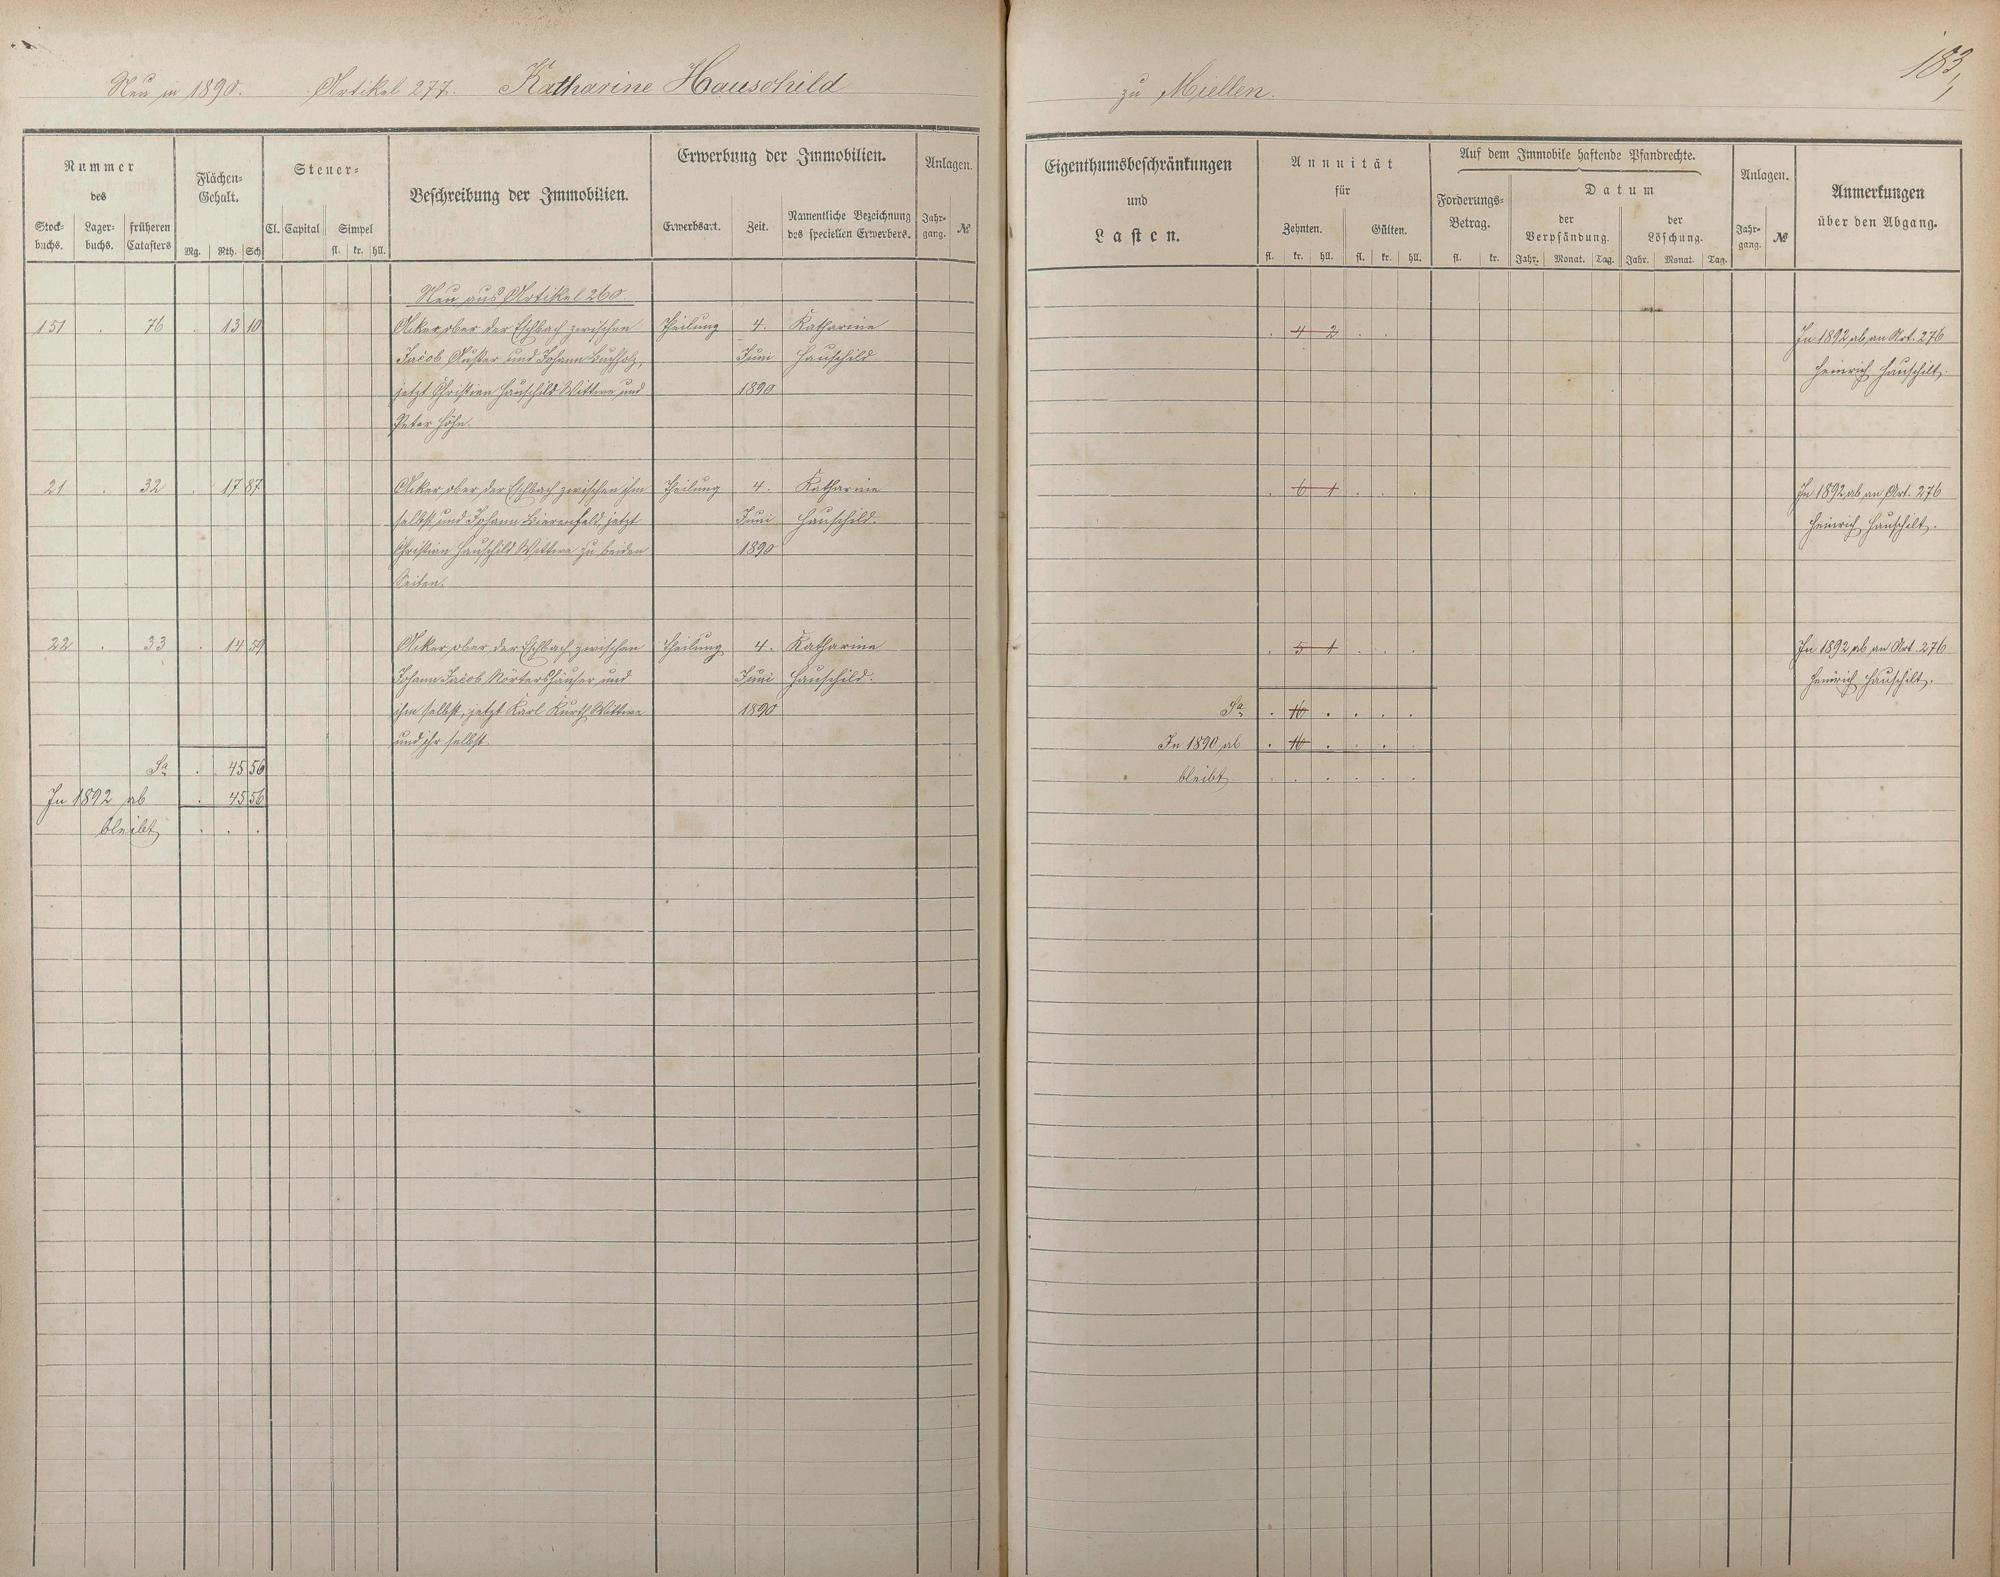 Neu in 1890. Artikel 277. Katharine Hauschild
zu Miellen.
183
Nummer
des
Stock-
buchs.
Lager-
buchs.
früheren
Catasters
Flächen-
Gehalt.
Mg. Rth. Sch
Steuer-
Cl. Capital
Simpel
fl. kr. hll.
Beschreibung der Immobilien.
Erwerbung der Immobilien.
Erwerbsart.
Zeit.
Namentliche Bezeichnung
des speciellen Erwerbers.
Anlagen.
Jahr-
gang.
№
Eigenthumsbeschränkungen
und
Lasten.
Annuität
für
Zehnten.
Gülten.
fl. kr. hll. fl. kr. hll.
Auf dem Immobile haftende Pfandrechte.
Forderungs-
Betrag.
fl. kr.
Datum
der
Verpfändung.
der
Löschung.
Jahr. Monat. Tag. Jahr. Monat. Tag.
Anlagen.
Jahr-
gang.
№
Anmerkungen
über den Abgang.
Neu aus Artikel 260.
151 . 76 . 13 10 Acker ober der Eschbach zwischen Theilung 4. Katharine . 4 2 . . In 1892 ab an Art. 276
Jacob Auster und Johann Buchholz, Juni Hauschild Heinrich Hauschilt.
jetzt Christian Hauschild Wittwe und 1890
Peter Höhn.
21 . 32 . 17 87 Acker ober der Eschbach zwischen ihm Theilung 4. Katharine . 6 1 . . . In 1892 ab an Art. 276
selbst und Johann Bierenfeld, jetzt Juni Hauschild. Heinrich Hauschilt.
Christian Hauschild Wittwe zu beiden 1890
Seiten.
22 . 33 . 14 59 Acker ober der Eschbach zwischen Theilung 4. Katharine . 5 1 . . . In 1892 ab an Art. 276
Johann Jacob Nörtershäuser und Juni Hauschild. Heinrich Hauschilt.
ihm selbst, jetzt Karl Kurth Wittwe 1890 Sa . 16 . . . .
und ihr selbst. In 1890 ab . 16 . . . .
Sa . 45 56 bleibt . . . . . .
In 1892 ab . 45 56
bleibt . . .